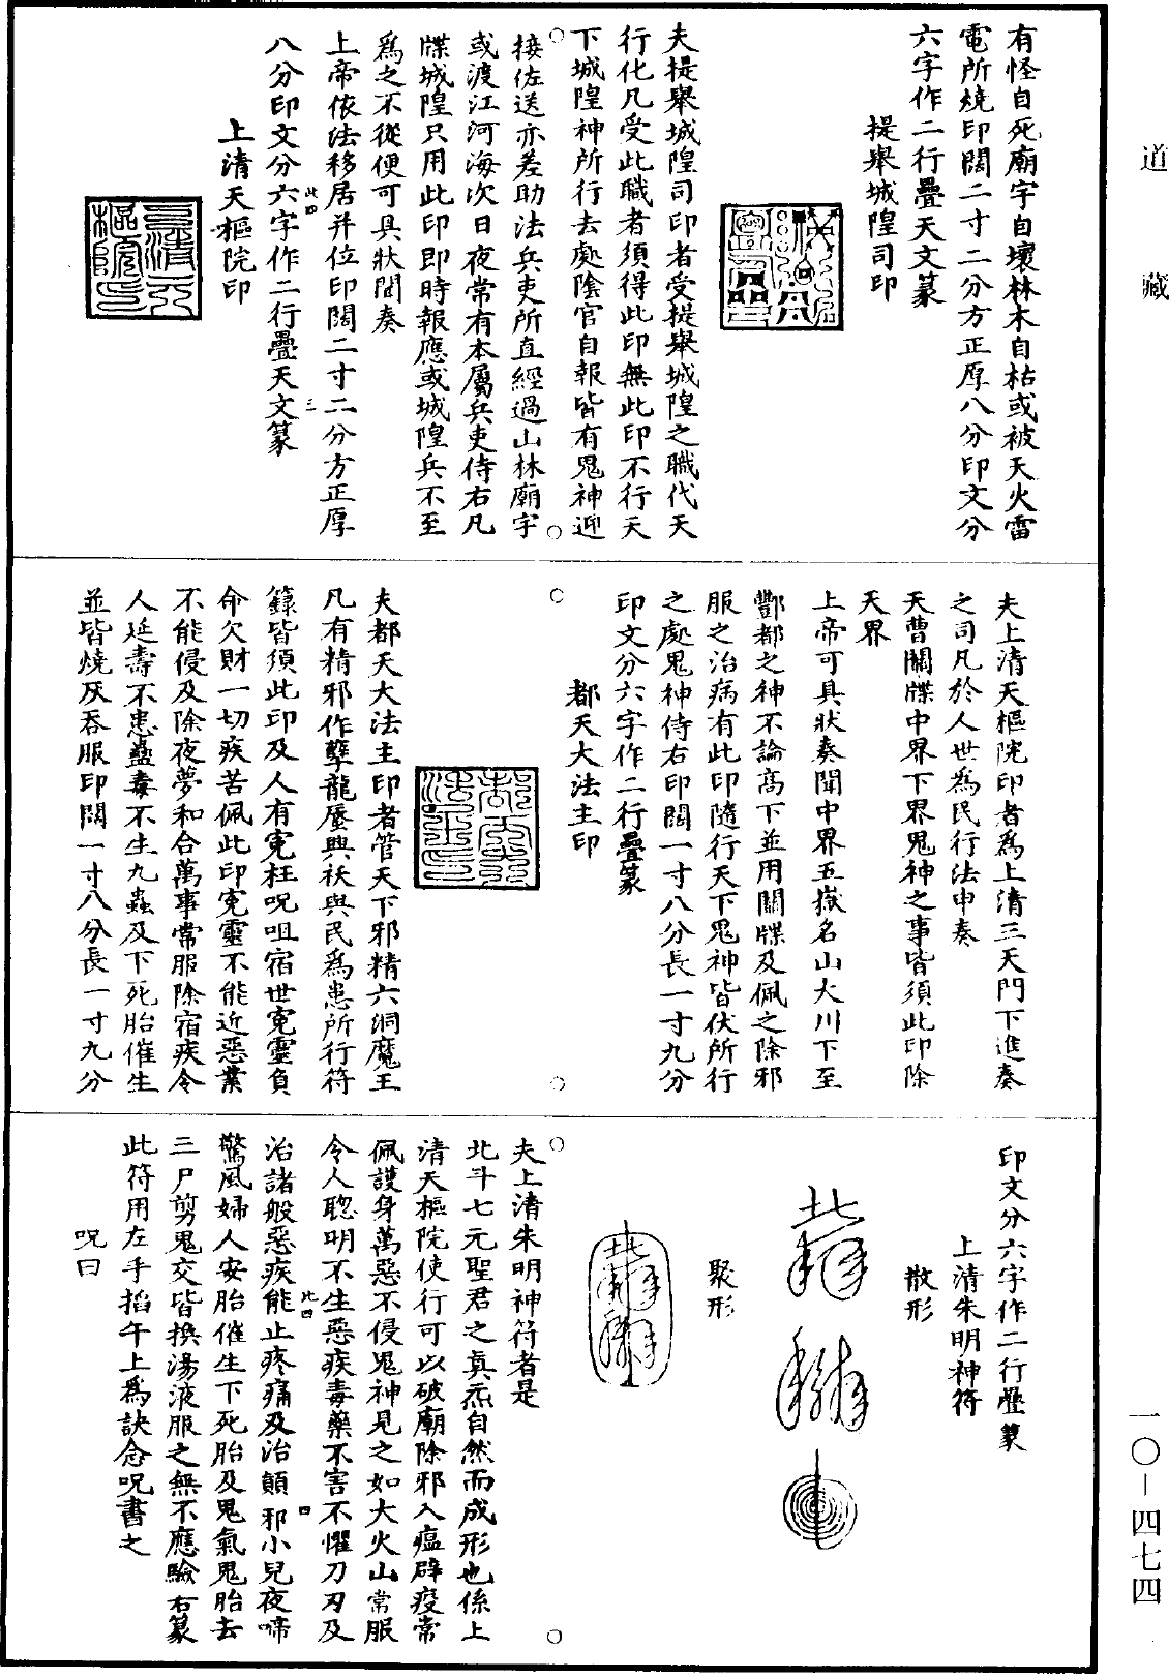 道藏
有怪自死廟宇自壞林木自枯或被天火雷
電所燒印闊二寸二分方正厚八分印文分
六字作二行疊天文篆
提舉城隍司印
夫提舉城隍司印者受提舉城隍之職代天
行化凡受此職者須得此印無此印不行天
下城隍神所行去處陰官自報皆有鬼神迎
接佐送亦差助法兵吏所直經過山林廟宇
或渡江河海次日夜常有本屬兵吏侍右凡
牒城隍只用此印即時報應或城隍兵不至
爲之不從便可具狀聞奏
上帝依法移居并位印闊二寸二分方正厚
八分印文分六字作二行疊天文篆
此四
三
上清天樞院印
夫上清天樞院印者爲上清三天門下進奏
之司凡於人世爲民行法申奏
天曹關牒中界下界鬼神之事皆須此印除
天界
上帝可具狀奏聞中界五嶽名山大川下至
酆都之神不論高下並用關牒及佩之除邪
服之治病有此印隨行天下鬼神皆伏所行
之處鬼神侍右印闊一寸八分長一寸九分
印文分六字作二行疊篆
都天大法主印
夫都天大法主印者管天下邪精六洞魔王
凡有精邪作孽龍蜃興祅與民爲患所行符
籙皆須此印及人有冤枉呪咀宿世冤靈負
命欠財一切疾苦佩此印冤靈不能近惡業
不能侵及除夜夢和合萬事常服除宿疾令
人延壽不患蠱毒不生九蟲及下死胎催生
並皆燒灰吞服印闊一寸八分長一寸九分
印文分六字作二行疊篆
上清朱明神符
散形
聚形
夫上清朱明神符者是
北斗七元聖君之真炁自然而成形也係上
清天樞院使行可以破廟除邪入瘟辟疫常
佩護身萬惡不侵鬼神見之如大火山常服
令人聰明不生惡疾毒藥不害不懼刀刃及
治諸般惡疾能止疼痛及治顛邪小兒夜啼
此四
四
驚風婦人安胎催生下死胎及鬼氣鬼胎去
三尸剪鬼交皆換湯液服之無不應驗右篆
此符用左手掐午上爲訣念呪書之
呪曰
一〇—四七四